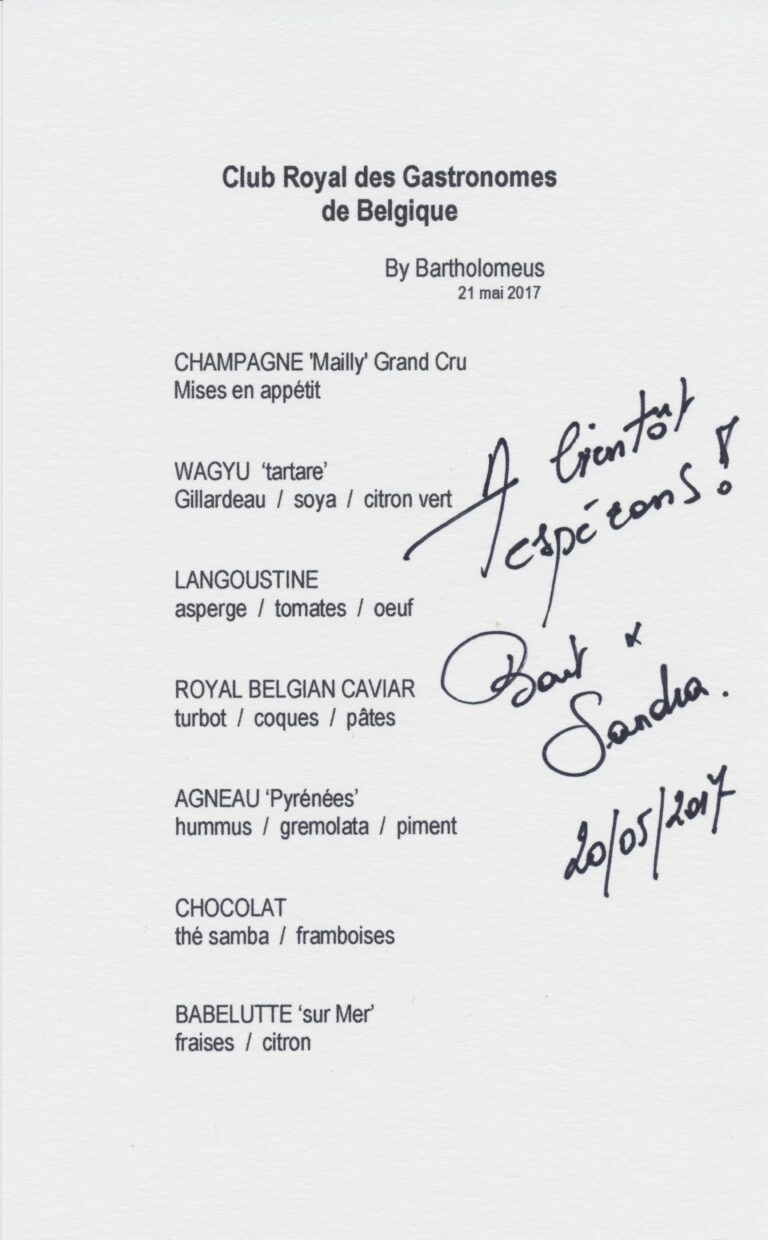 Club Royal des Gastronomes
de Belgique
By Bartholomeus
21 mai 2017
CHAMPAGNE 'Mailly' Grand Cru
Mises en appétit
WAGYU ‘tartare’
Gillardeau / soya / citron vert
LANGOUSTINE
asperge / tomates / oeuf
ROYAL BELGIAN CAVIAR
turbot / coques / pâtes
AGNEAU ‘Pyrénées’
hummus / gremolata / piment
CHOCOLAT
thé samba / framboises
BABELUTTE ‘sur Mer’
fraises / citron
A bientôt
espérons !
Bart &
Sandra.
20/05/2017